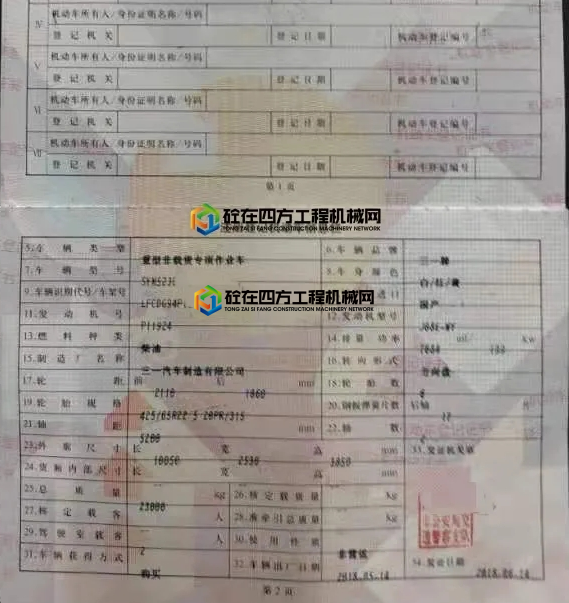 IV
机动车所有人/身份证明名称/号码
登记机关 登记日期 机动车登记编号
V
机动车所有人/身份证明名称/号码
登记机关 登记日期 机动车登记编号
VI
机动车所有人/身份证明名称/号码
登记机关 登记日期 机动车登记编号
VII
机动车所有人/身份证明名称/号码
登记机关 登记日期 机动车登记编号
第1页
砼在四方工程机械网
TONG ZAI SI FANG CONSTRUCTION MACHINERY NETWORK
5.车辆类型 重型非载货专项作业车 6.车辆品牌 三一牌
7.车辆型号 8.车身颜色 白/红/黄
9.车辆识别代号/车架号 国产
砼在四方工程机械网
TONG ZAI SI FANG CONSTRUCTION MACHINERY NETWORK
11.发动机号 12.发动机型号
13.燃料种类 柴油 14.排量/功率 ml/ kw
15.制造厂名称 三一汽车制造有限公司 16.转向形式 方向盘
17.轮距 前 2110 后 1860 mm 18.轮胎数
19.轮胎规格 425/65R22.5 20PR/315 20.钢板弹簧片数 后轴
21.轴距 5200 mm 22.轴数
23.外廓尺寸 长 10050 宽 2530 高 3850 mm 33.发证机关章
24.货厢内部尺寸 长 宽 高 mm
25.总质量 23000 kg 26.核定载质量 kg
27.核定载客 人 28.准牵引总质量 kg
29.驾驶室载客 2 人 30.使用性质 非营运
31.车辆获得方式 购买 32.车辆出厂日期 2018.05.14 34.发证日期 2018.06.14
第2页